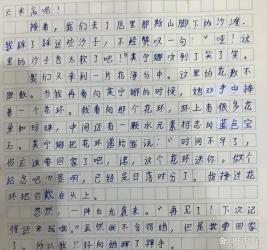 天来高呢！
接着，我们去了居里那斯山脚下的沙滩，
我踩了踩这些沙子，不经赞叹一句：“哇！这
里的沙子也太软了吧！”莫宁娜听到了笑了笑。
我们又来到一片花海当中。这里的花数不
胜数。当我再看向莫宁娜的时候，她双手中捧
着一个花环。我看向那个花环，环上有很多花
朵和珍珠，中间还有一颗水元素标志的蓝色宝
石。莫宁娜把花环递给我说：“时间不早了，
你应该要回家了吧，诺，这个花环送你，做个
纪念吧”是啊，已经是日落时分了。我接过花
环把它戴在头上。
忽然，一阵白光袭来。“再见了！下次记
得还来玩哦。”虽然我不舍得她，但是我要回家
了。所以我只好向她挥了挥手。